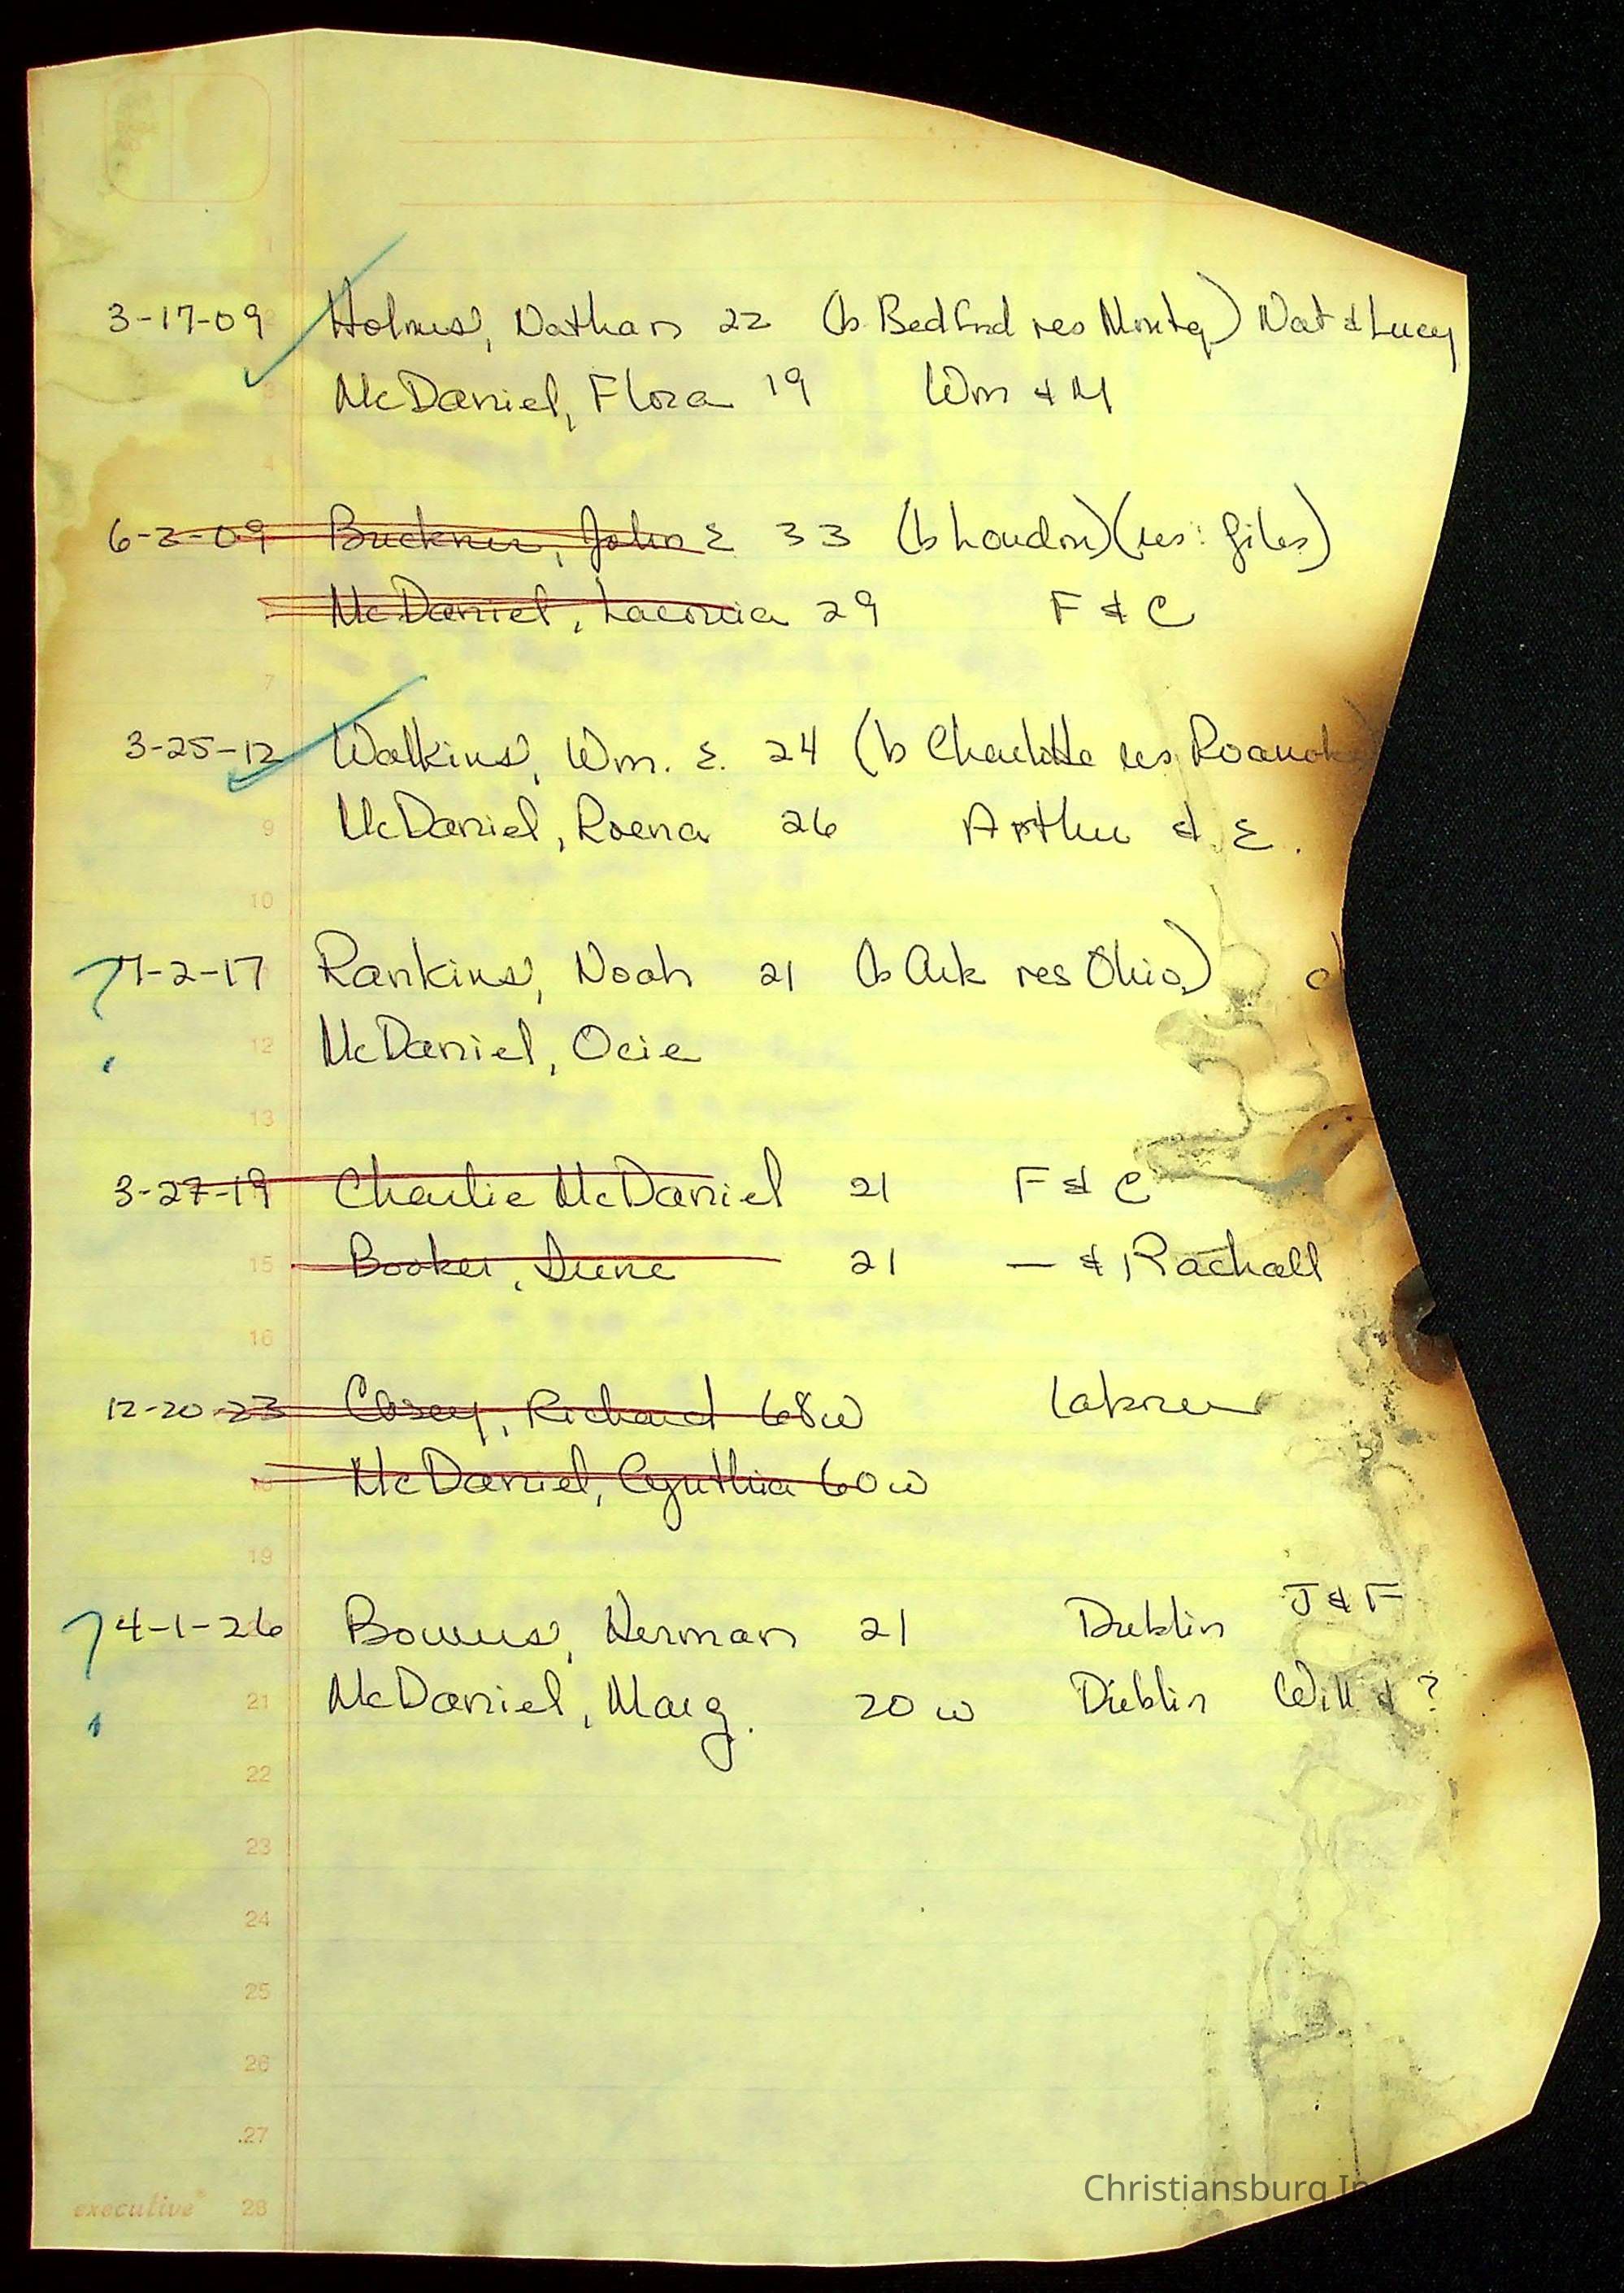 3-17-09 Holmes, Nathan 22 (b Bedford res Montg) Nat & Lucy
McDaniel, Flora 19 Wm & M
6-2-09 Buckner, John E 33 (b Loudon) (res: Giles)
McDaniel, Laconia 29 F & C
3-25-12 Walkins, Wm. E. 24 (b Charlotte res Roanoke)
McDaniel, Roena 26 Arthur & E.
? 7-2-17 Rankins, Noah 21 (b Ark res Ohio)
McDaniel, Ocie
3-27-19 Charlie McDaniel 21 F & C
Booker, Irene 21 — & Rachall
12-20-23 Casey, Richard 68w laborer
McDaniel, Cynthia 60w
? 4-1-26 Bowens, Herman 21 Dublin J & F
McDaniel, Marg. 20 w Dublin Will & ?
4
7
9
10
12
13
15
16
19
21
22
23
24
25
26
27
executive® 28
Christiansburg